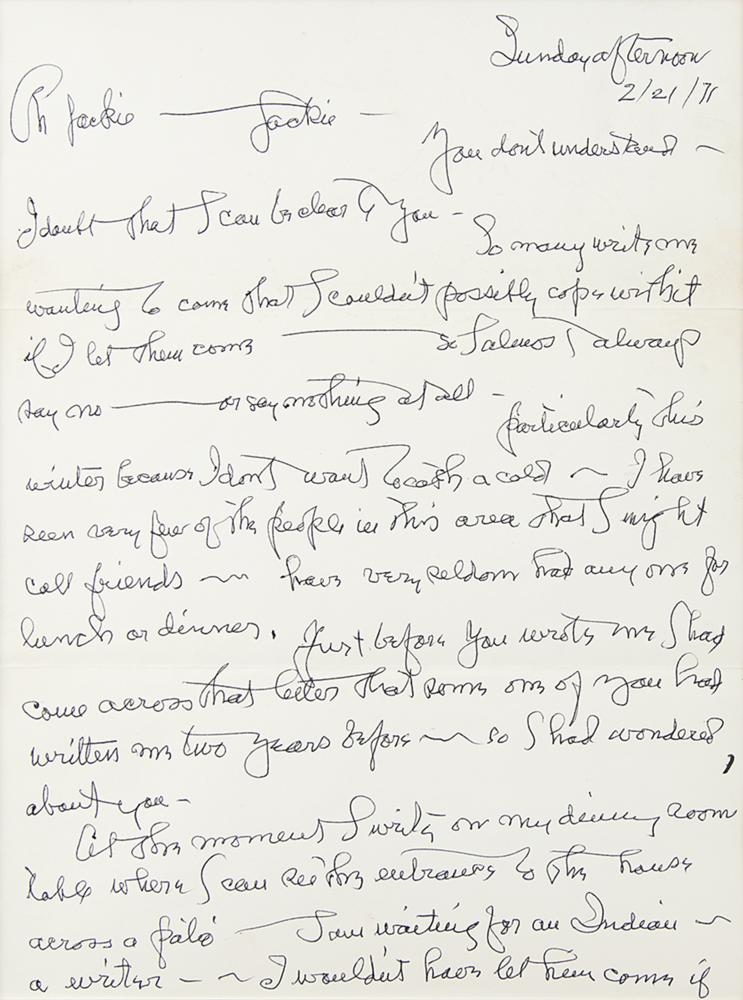 Sunday afternoon
2/21/71
Oh Jackie — Jackie —
You don't understand ~
I doubt that I can be clear to you —
So many write me
wanting to come that I couldn't possibly cope with it
if I let them come — so I almost always
say no — or say nothing at all —
particularly this
winter because I don't want to catch a cold ~ I have
seen very few of the people in this area that I might
call friends ~ have very seldom had any one for
lunch or dinner. Just before you wrote me I had
come across that letter that some one of you had
written me two years before ~ so I had wondered
about you —
At the moment I write on my dining room
table where I can see the entrance to the house
across a patio — I am waiting for an Indian ~
a writer — ~ I wouldn't have let him come if